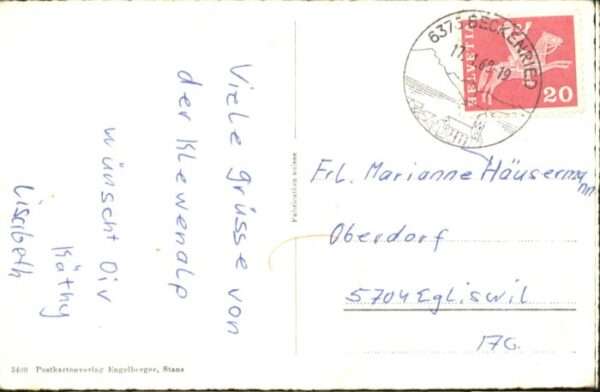 Viele grüsse von
der Klewenalp
wünscht Dir
Käthy
Lisibeth
6375 BECKENRIED
HELVETIA
20
Frl. Marianne Häusermann
Oberdorf
5704 Egliswil
Postkartenverlag Engelberger, Stans